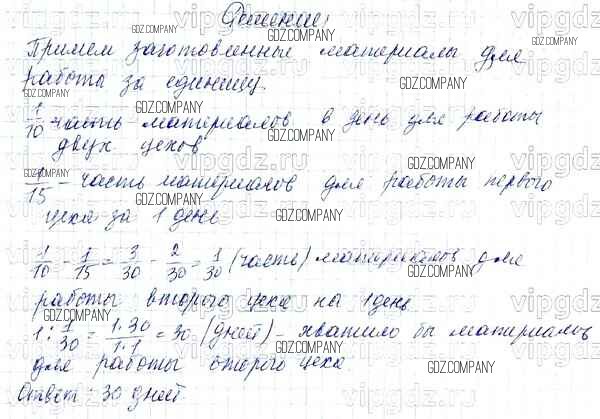 Решение:
Примем заготовленные материалы для
работы за единицу.
1/10 - часть материалов в день для работы
двух цехов
1/15 - часть материалов для работы первого
цеха за 1 день
1/10 - 1/15 = 3/30 - 2/30 = 1/30 (часть) материалов для
работы второго цеха на 1 день.
1 : 1/30 = 1·30/1·1 = 30 (дней) - хватило бы материалов
для работы второго цеха
Ответ: 30 дней.
GDZ.COMPANY
vipgdz.ru